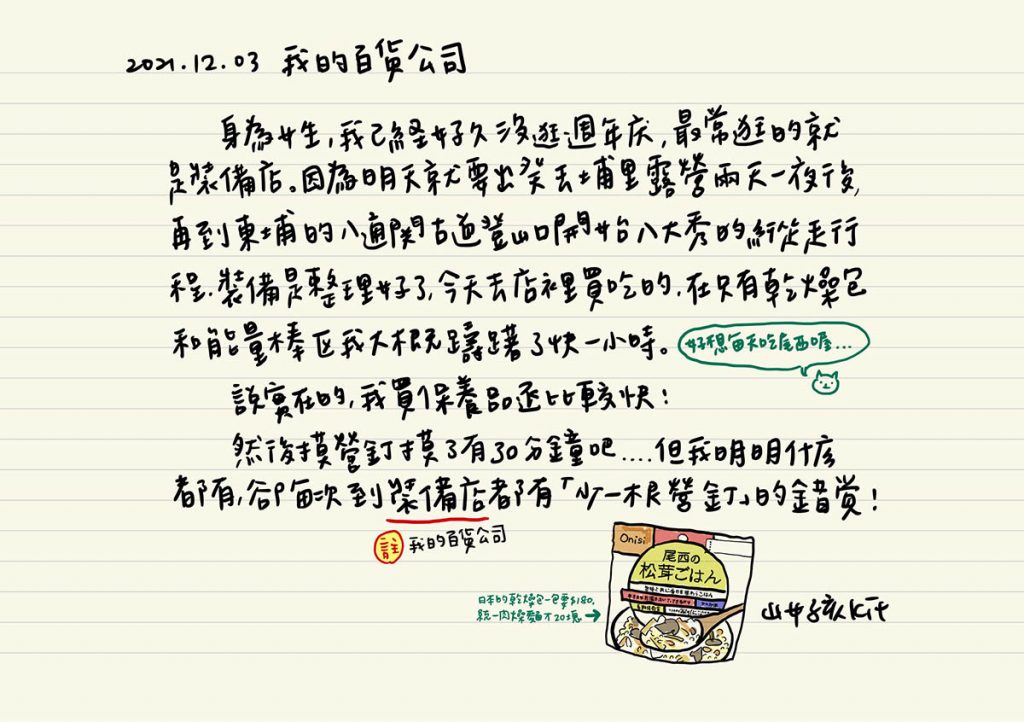 2021.12.03 我的百貨公司
身為女生，我已經好久沒逛週年庆，最常逛的就
是裝備店。因為明天就要出發去埔里露營兩天一夜後，
再到東埔的八通関古道登山口開始八大秀的縱走行
程.裝備是整理好了，今天去店裡買吃的，在只有乾燥包
和能量棒区我大概躊躇了快一小時。
好想每天吃尾西喔...
說實在的，我買保養品還比較快！
然後摸營釘摸了有30分鐘吧....但我明明什麼
都有，卻每次到裝備店都有「少一根營釘」的錯覺！
註 我的百貨公司
Onisi
尾西の
松茸ごはん
日本的乾燥包一包要$180，
統一肉燥麵才20塊→
山女孩Kit